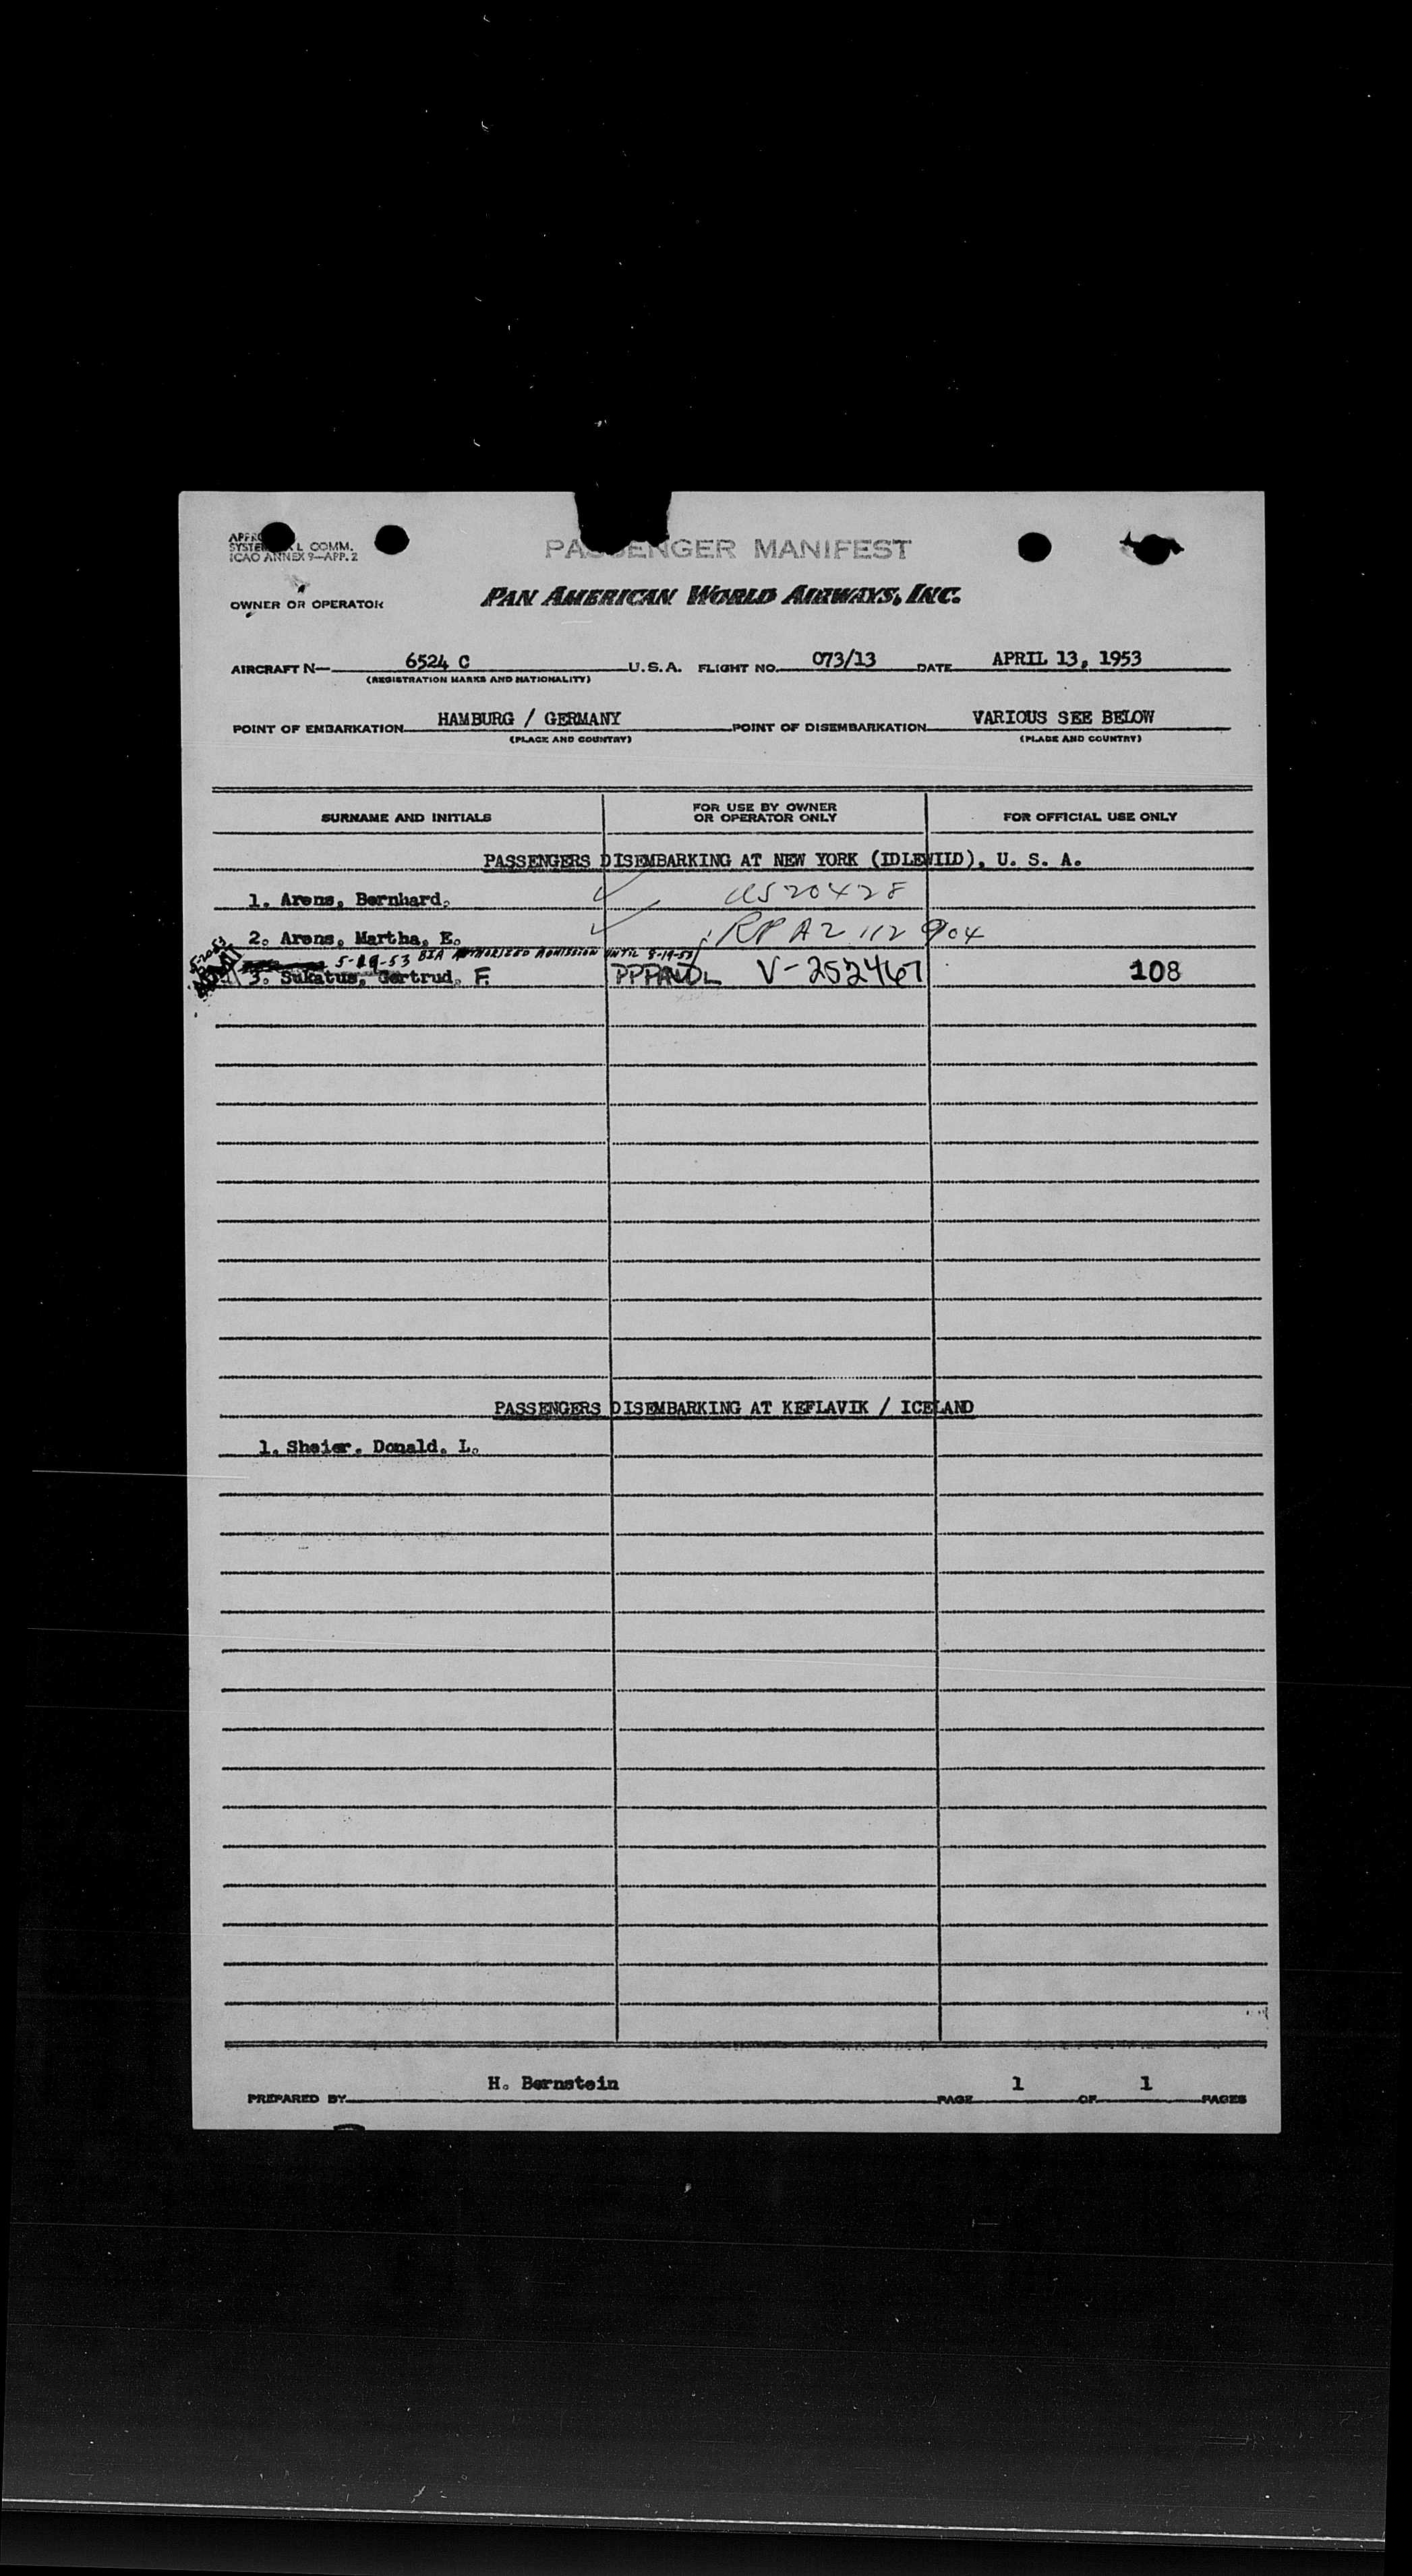 SYSTE L COMM.
ICAO ANNEX 9—APP. 2
PASSENGER MANIFEST
OWNER OR OPERATOR
PAN AMERICAN WORLD AIRWAYS, INC.
AIRCRAFT N— 6524 C U.S.A. FLIGHT NO. 073/13 DATE APRIL 13, 1953
(REGISTRATION MARKS AND NATIONALITY)
POINT OF EMBARKATION HAMBURG / GERMANY POINT OF DISEMBARKATION VARIOUS SEE BELOW
(PLACE AND COUNTRY) (PLACE AND COUNTRY)
SURNAME AND INITIALS FOR USE BY OWNER OR OPERATOR ONLY FOR OFFICIAL USE ONLY
PASSENGERS DISEMBARKING AT NEW YORK (IDLEWILD), U. S. A.
1. Arens, Bernhard. US 20428
2. Arens, Martha, E. RP A2 112 904
5-20-53 ADMIT 5-19-53 BIA AUTHORIZED ADMISSION UNTIL 8-19-53
3. Sukatus, Gertrud, F. V-252467 108
PASSENGERS DISEMBARKING AT KEFLAVIK / ICELAND
1. Sheier. Donald. L.
PREPARED BY H. Bernstein PAGE 1 OF 1 PAGES